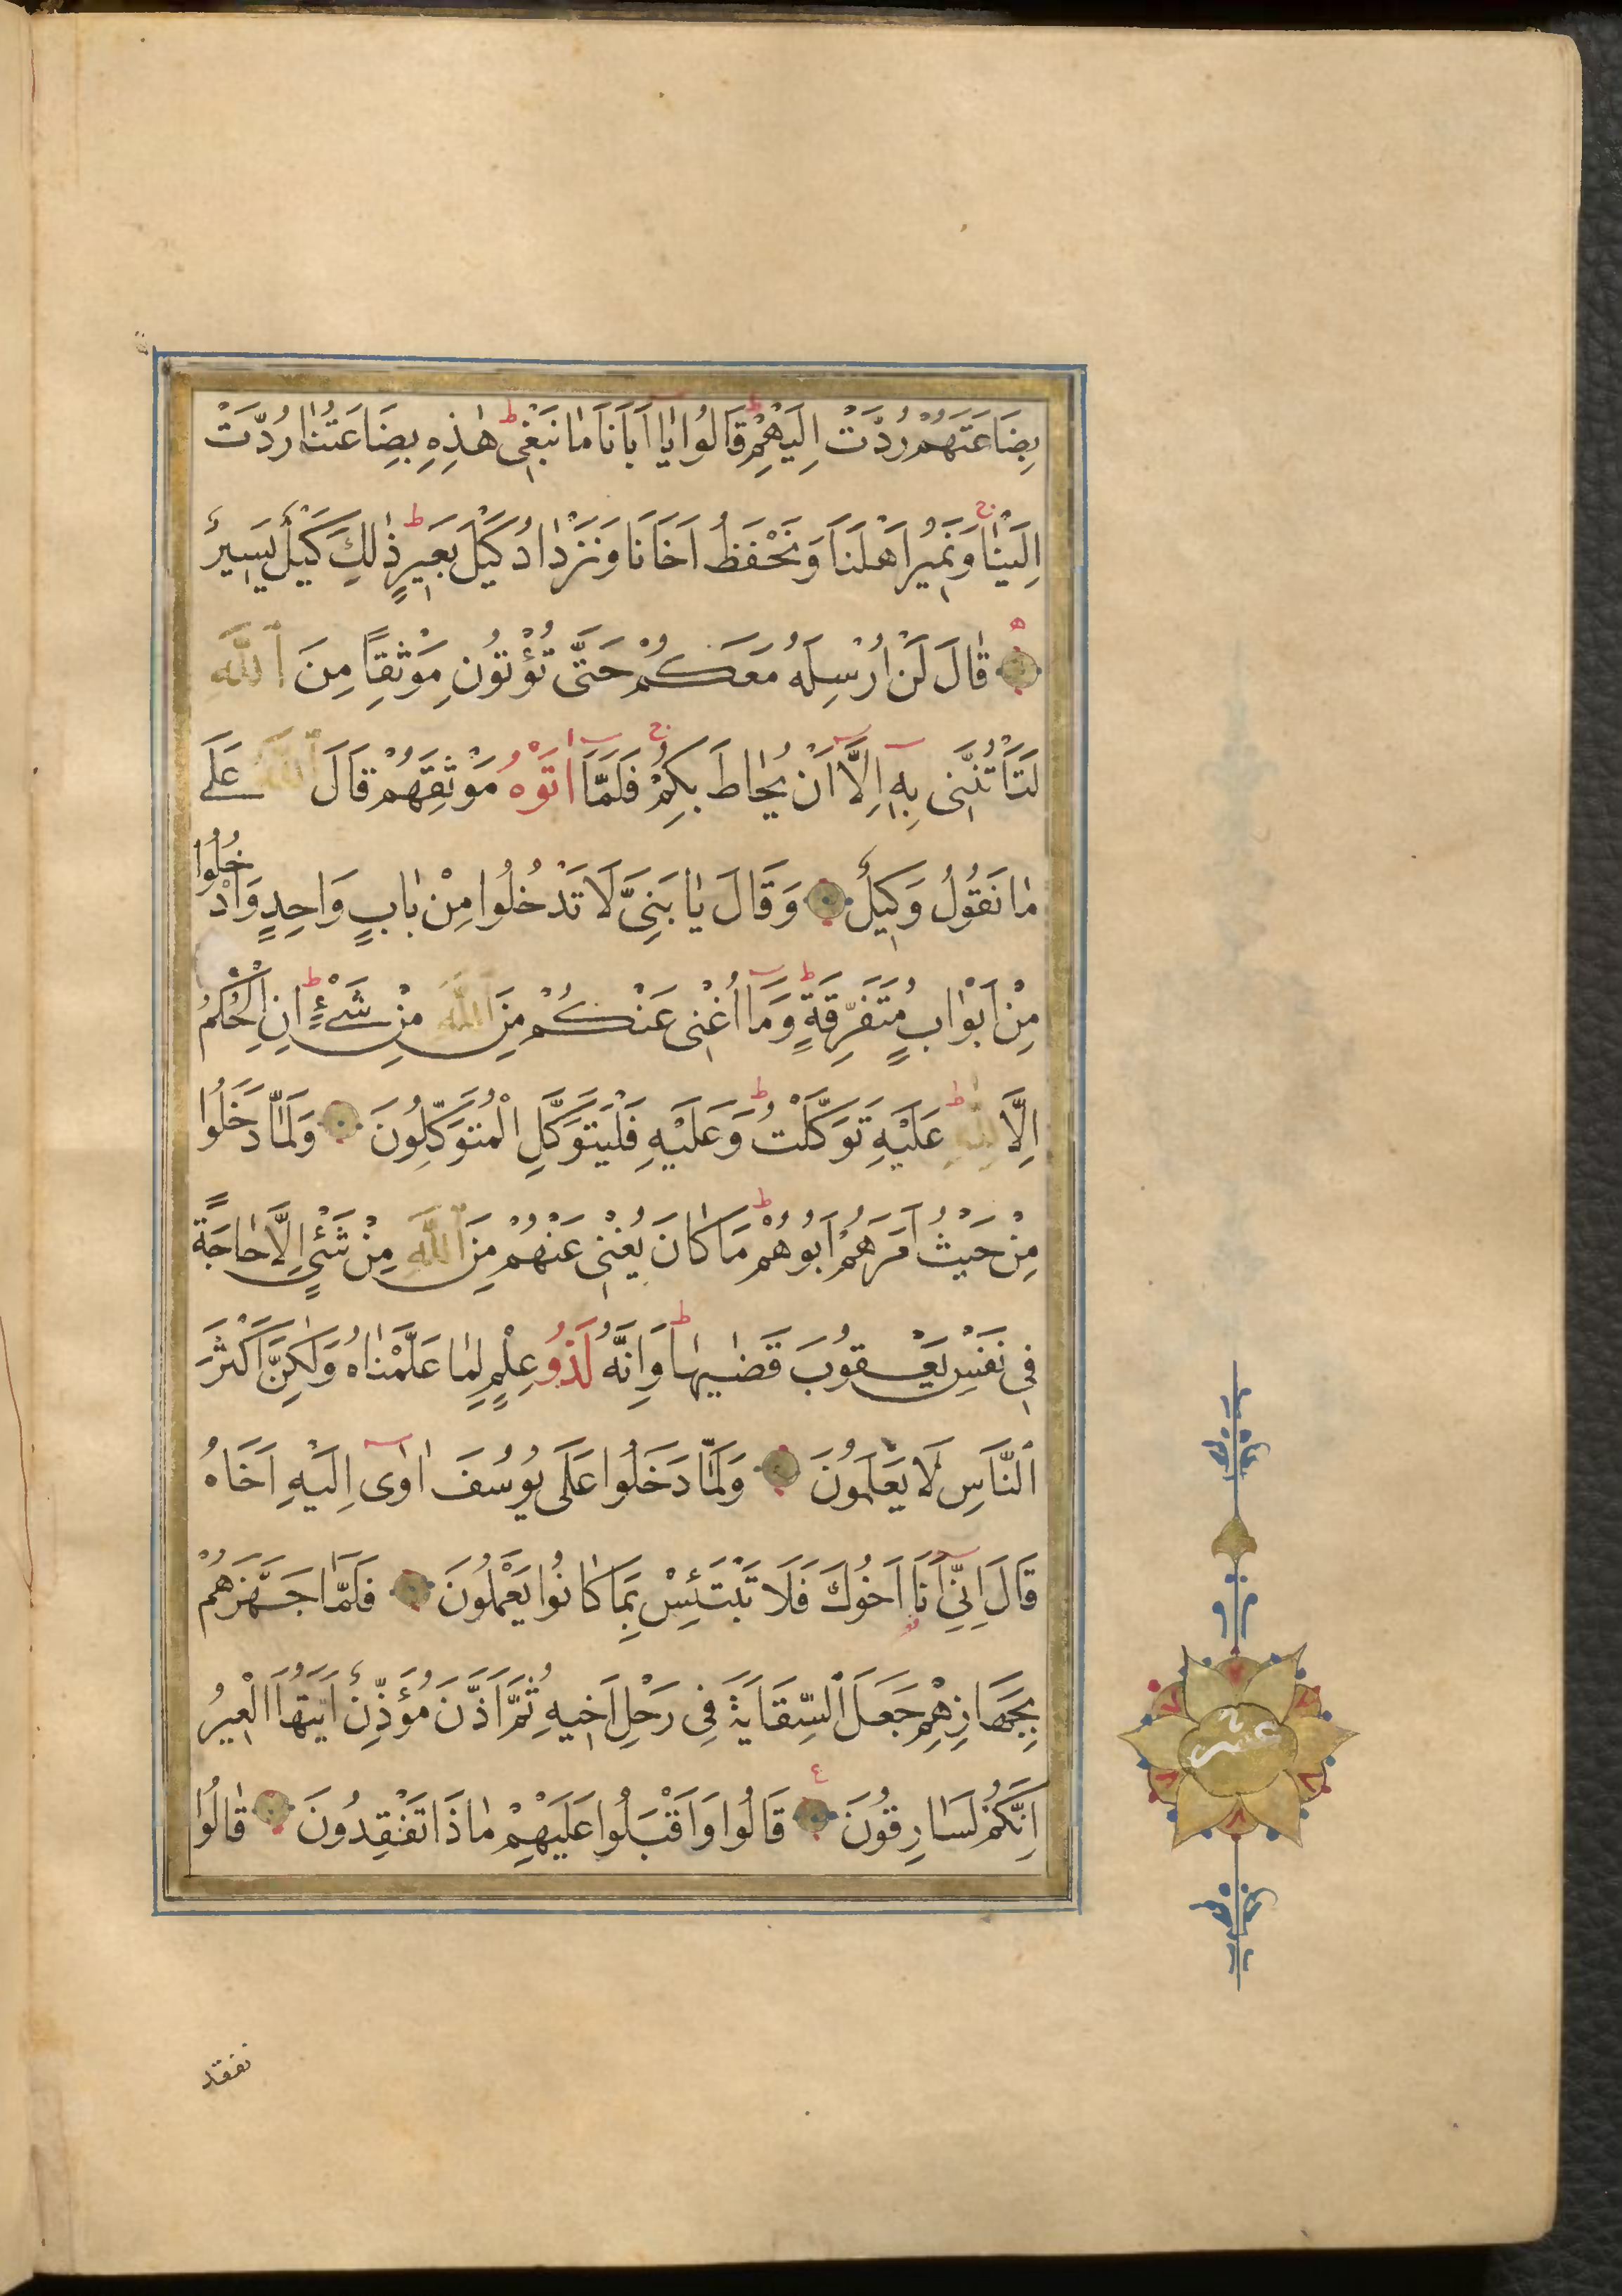 بِضَاعَتَهُمْ رُدَّتْ اِلَيْهِمْ قَالُوا يَا اَبَانَا مَا نَبْغِى هٰذِهِ بِضَاعَتُنَا رُدَّتْ
اِلَيْنَا وَنَمِيرُ اَهْلَنَا وَنَحْفَظُ اَخَانَا وَنَزْدَادُ كَيْلَ بَعِيرٍ ذٰلِكَ كَيْلٌ يَسِيرٌ
قَالَ لَنْ اُرْسِلَهُ مَعَكُمْ حَتَّى تُؤْتُونِ مَوْثِقًا مِنَ اللَّهِ
لَتَأْتُنَّنِى بِهِ اِلَّا اَنْ يُحَاطَ بِكُمْ فَلَمَّا اٰتَوْهُ مَوْثِقَهُمْ قَالَ اللَّهُ عَلَى
مَا نَقُولُ وَكِيلٌ وَقَالَ يَا بَنِىَّ لَا تَدْخُلُوا مِنْ بَابٍ وَاحِدٍ وَادْخُلُوا
مِنْ اَبْوَابٍ مُتَفَرِّقَةٍ وَمَا اُغْنِى عَنْكُمْ مِنَ اللَّهِ مِنْ شَىْءٍ اِنِ الْحُكْمُ
اِلَّا لِلَّهِ عَلَيْهِ تَوَكَّلْتُ وَعَلَيْهِ فَلْيَتَوَكَّلِ الْمُتَوَكِّلُونَ وَلَمَّا دَخَلُوا
مِنْ حَيْثُ اَمَرَهُمْ اَبُوهُمْ مَا كَانَ يُغْنِى عَنْهُمْ مِنَ اللَّهِ مِنْ شَىْءٍ اِلَّا حَاجَةً
فِى نَفْسِ يَعْقُوبَ قَضٰيهَا وَاِنَّهُ لَذُو عِلْمٍ لِمَا عَلَّمْنَاهُ وَلٰكِنَّ اَكْثَرَ
النَّاسِ لَا يَعْلَمُونَ وَلَمَّا دَخَلُوا عَلَى يُوسُفَ اٰوٰى اِلَيْهِ اَخَاهُ
قَالَ اِنِّى اَنَا اَخُوكَ فَلَا تَبْتَئِسْ بِمَا كَانُوا يَعْمَلُونَ فَلَمَّا جَهَّزَهُمْ
بِجَهَازِهِمْ جَعَلَ السِّقَايَةَ فِى رَحْلِ اَخِيهِ ثُمَّ اَذَّنَ مُؤَذِّنٌ اَيَّتُهَا الْعِيرُ
اِنَّكُمْ لَسَارِقُونَ قَالُوا وَاَقْبَلُوا عَلَيْهِمْ مَاذَا تَفْقِدُونَ قَالُوا
عشر
نفقد